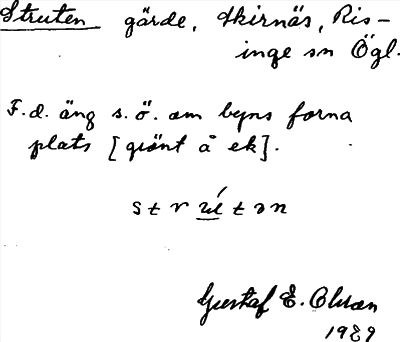 Struten gärde, Skirnäs, Ris-
inge sn Ögl.
F.d. äng s.ö. om byns forna
plats [grönt å ek].
Gustaf E. Olsson
1929